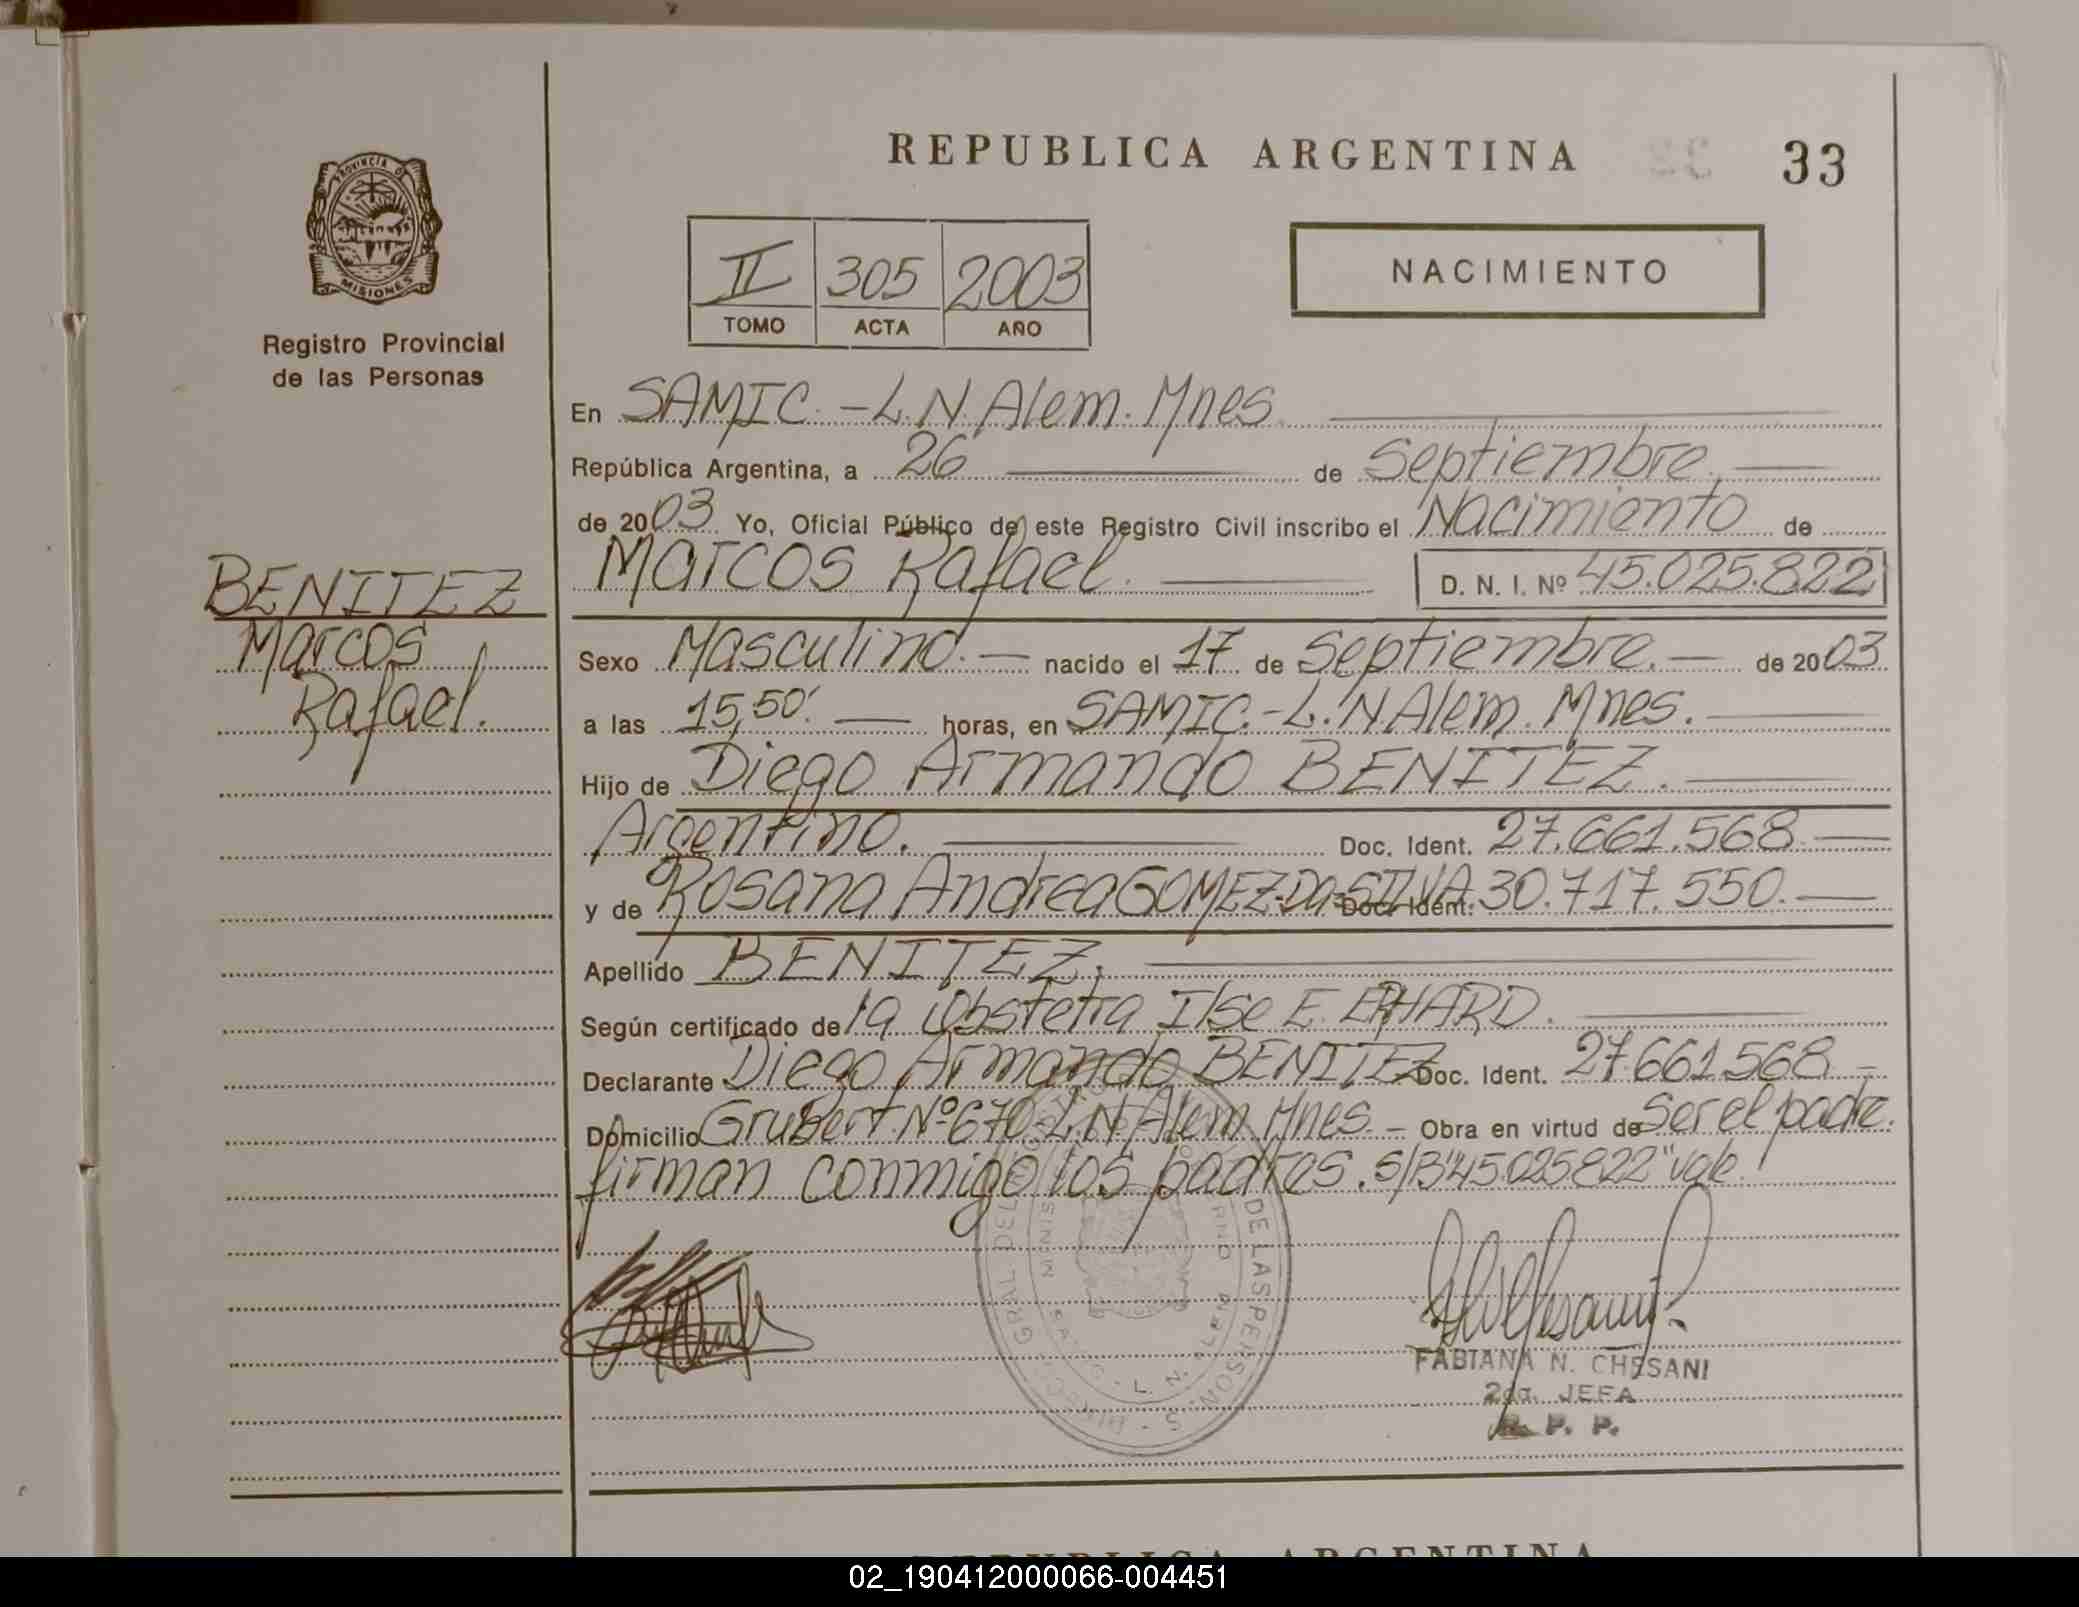 REPUBLICA ARGENTINA 33
PROVINCIA DE MISIONES
Registro Provincial
de las Personas
II 305 2003
TOMO ACTA AÑO
NACIMIENTO
En SAMIC.-L.N.Alem.Mnes.
República Argentina, a 26 de Septiembre.
de 2003 Yo, Oficial Público de este Registro Civil inscribo el Nacimiento de
Marcos Rafael. D. N. I. Nº 45.025.822
BENITEZ
Marcos
Rafael.
Sexo Masculino. nacido el 17 de Septiembre. de 2003
a las 15,50'. horas, en SAMIC.-L.N.Alem.Mnes.
Hijo de Diego Armando BENITEZ.
Argentino. Doc. Ident. 27.661.568
y de Rosana Andrea GOMEZ-Da-SILVA. Doc. Ident. 30.717.550.
Apellido BENITEZ.
Según certificado de la Obstetra Ilse E. ERHARD.
Declarante Diego Armando BENITEZ Doc. Ident. 27661.568
Domicilio Grubert Nº 670-L.N.Alem.Mnes. Obra en virtud de Ser el padre.
firman conmigo los padres. S/B"45.025822"vale.
DE LAS PERSON
L. N. ALEM
FABIANA N. CHESANI
2da. JEFA
R. P. P.
REPUBLICA ARGENTINA
02_190412000066-004451